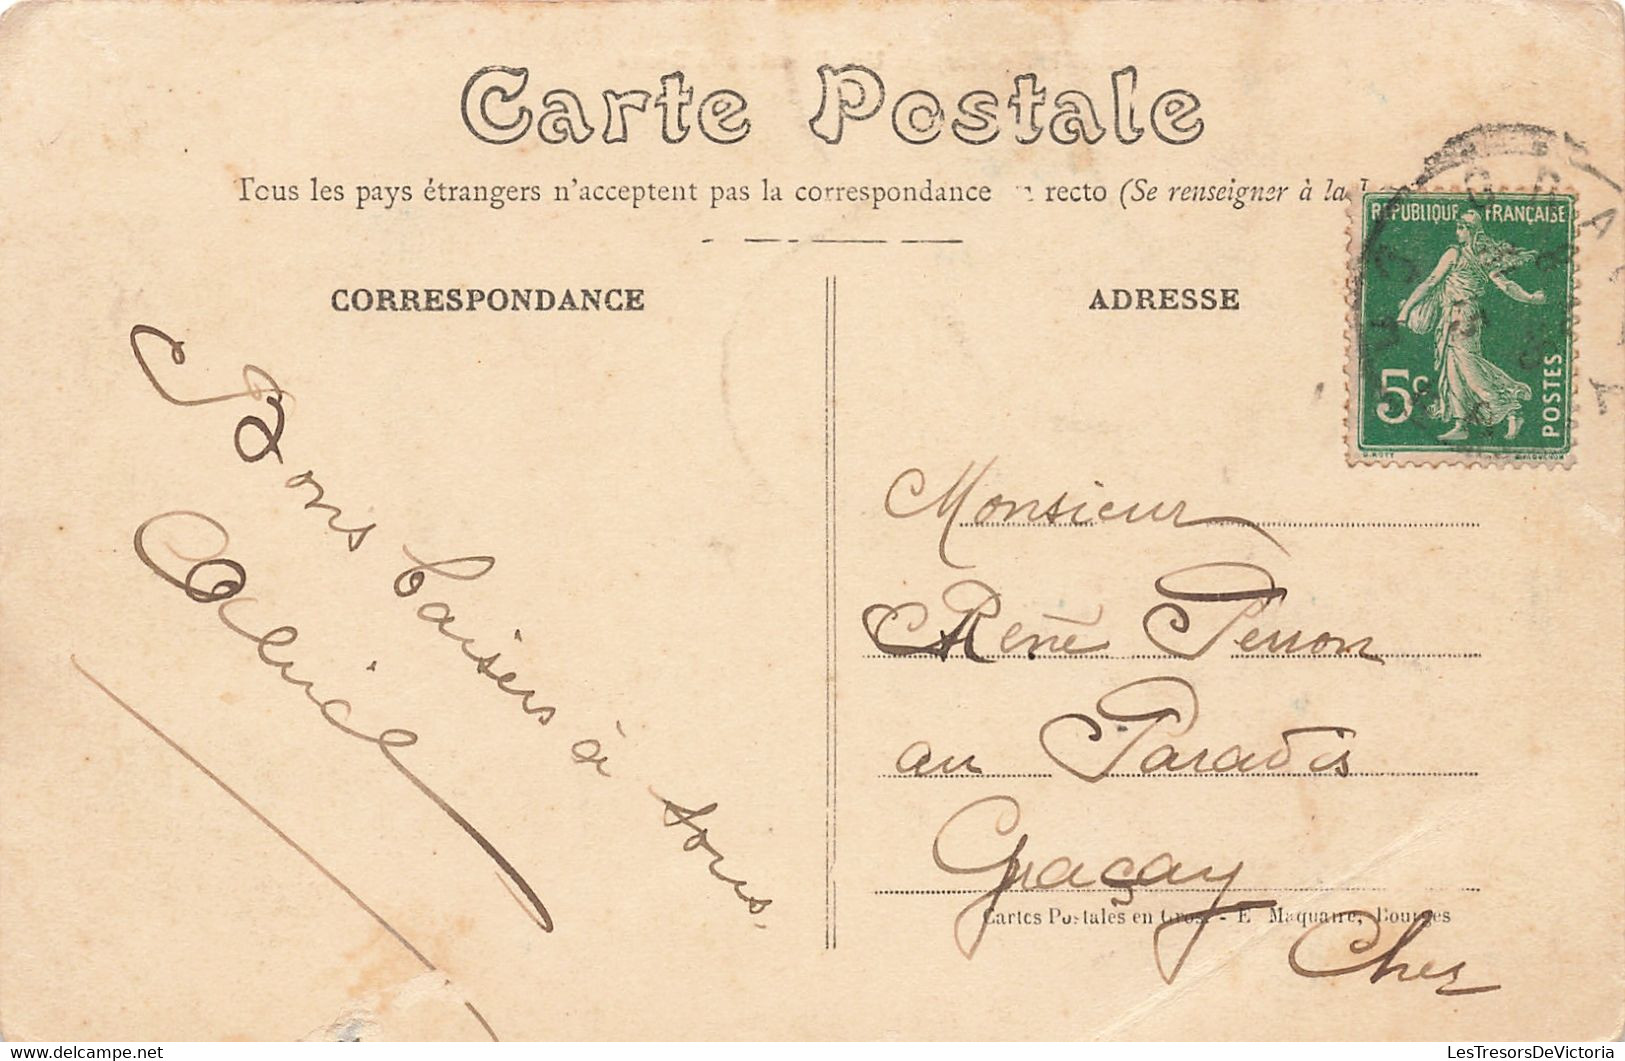 Carte Postale
Tous les pays étrangers n'acceptent pas la correspondance recto (Se renseigner à la
CORRESPONDANCE
ADRESSE
RÉPUBLIQUE FRANÇAISE
5c
POSTES
Bons baisers à
tous.
Alice
Monsieur
René Perron
au Paradis
Graçay
Cher
Cartes Postales en Gros. - E. Maquaire, Bourges
LesTresorsDeVictoria